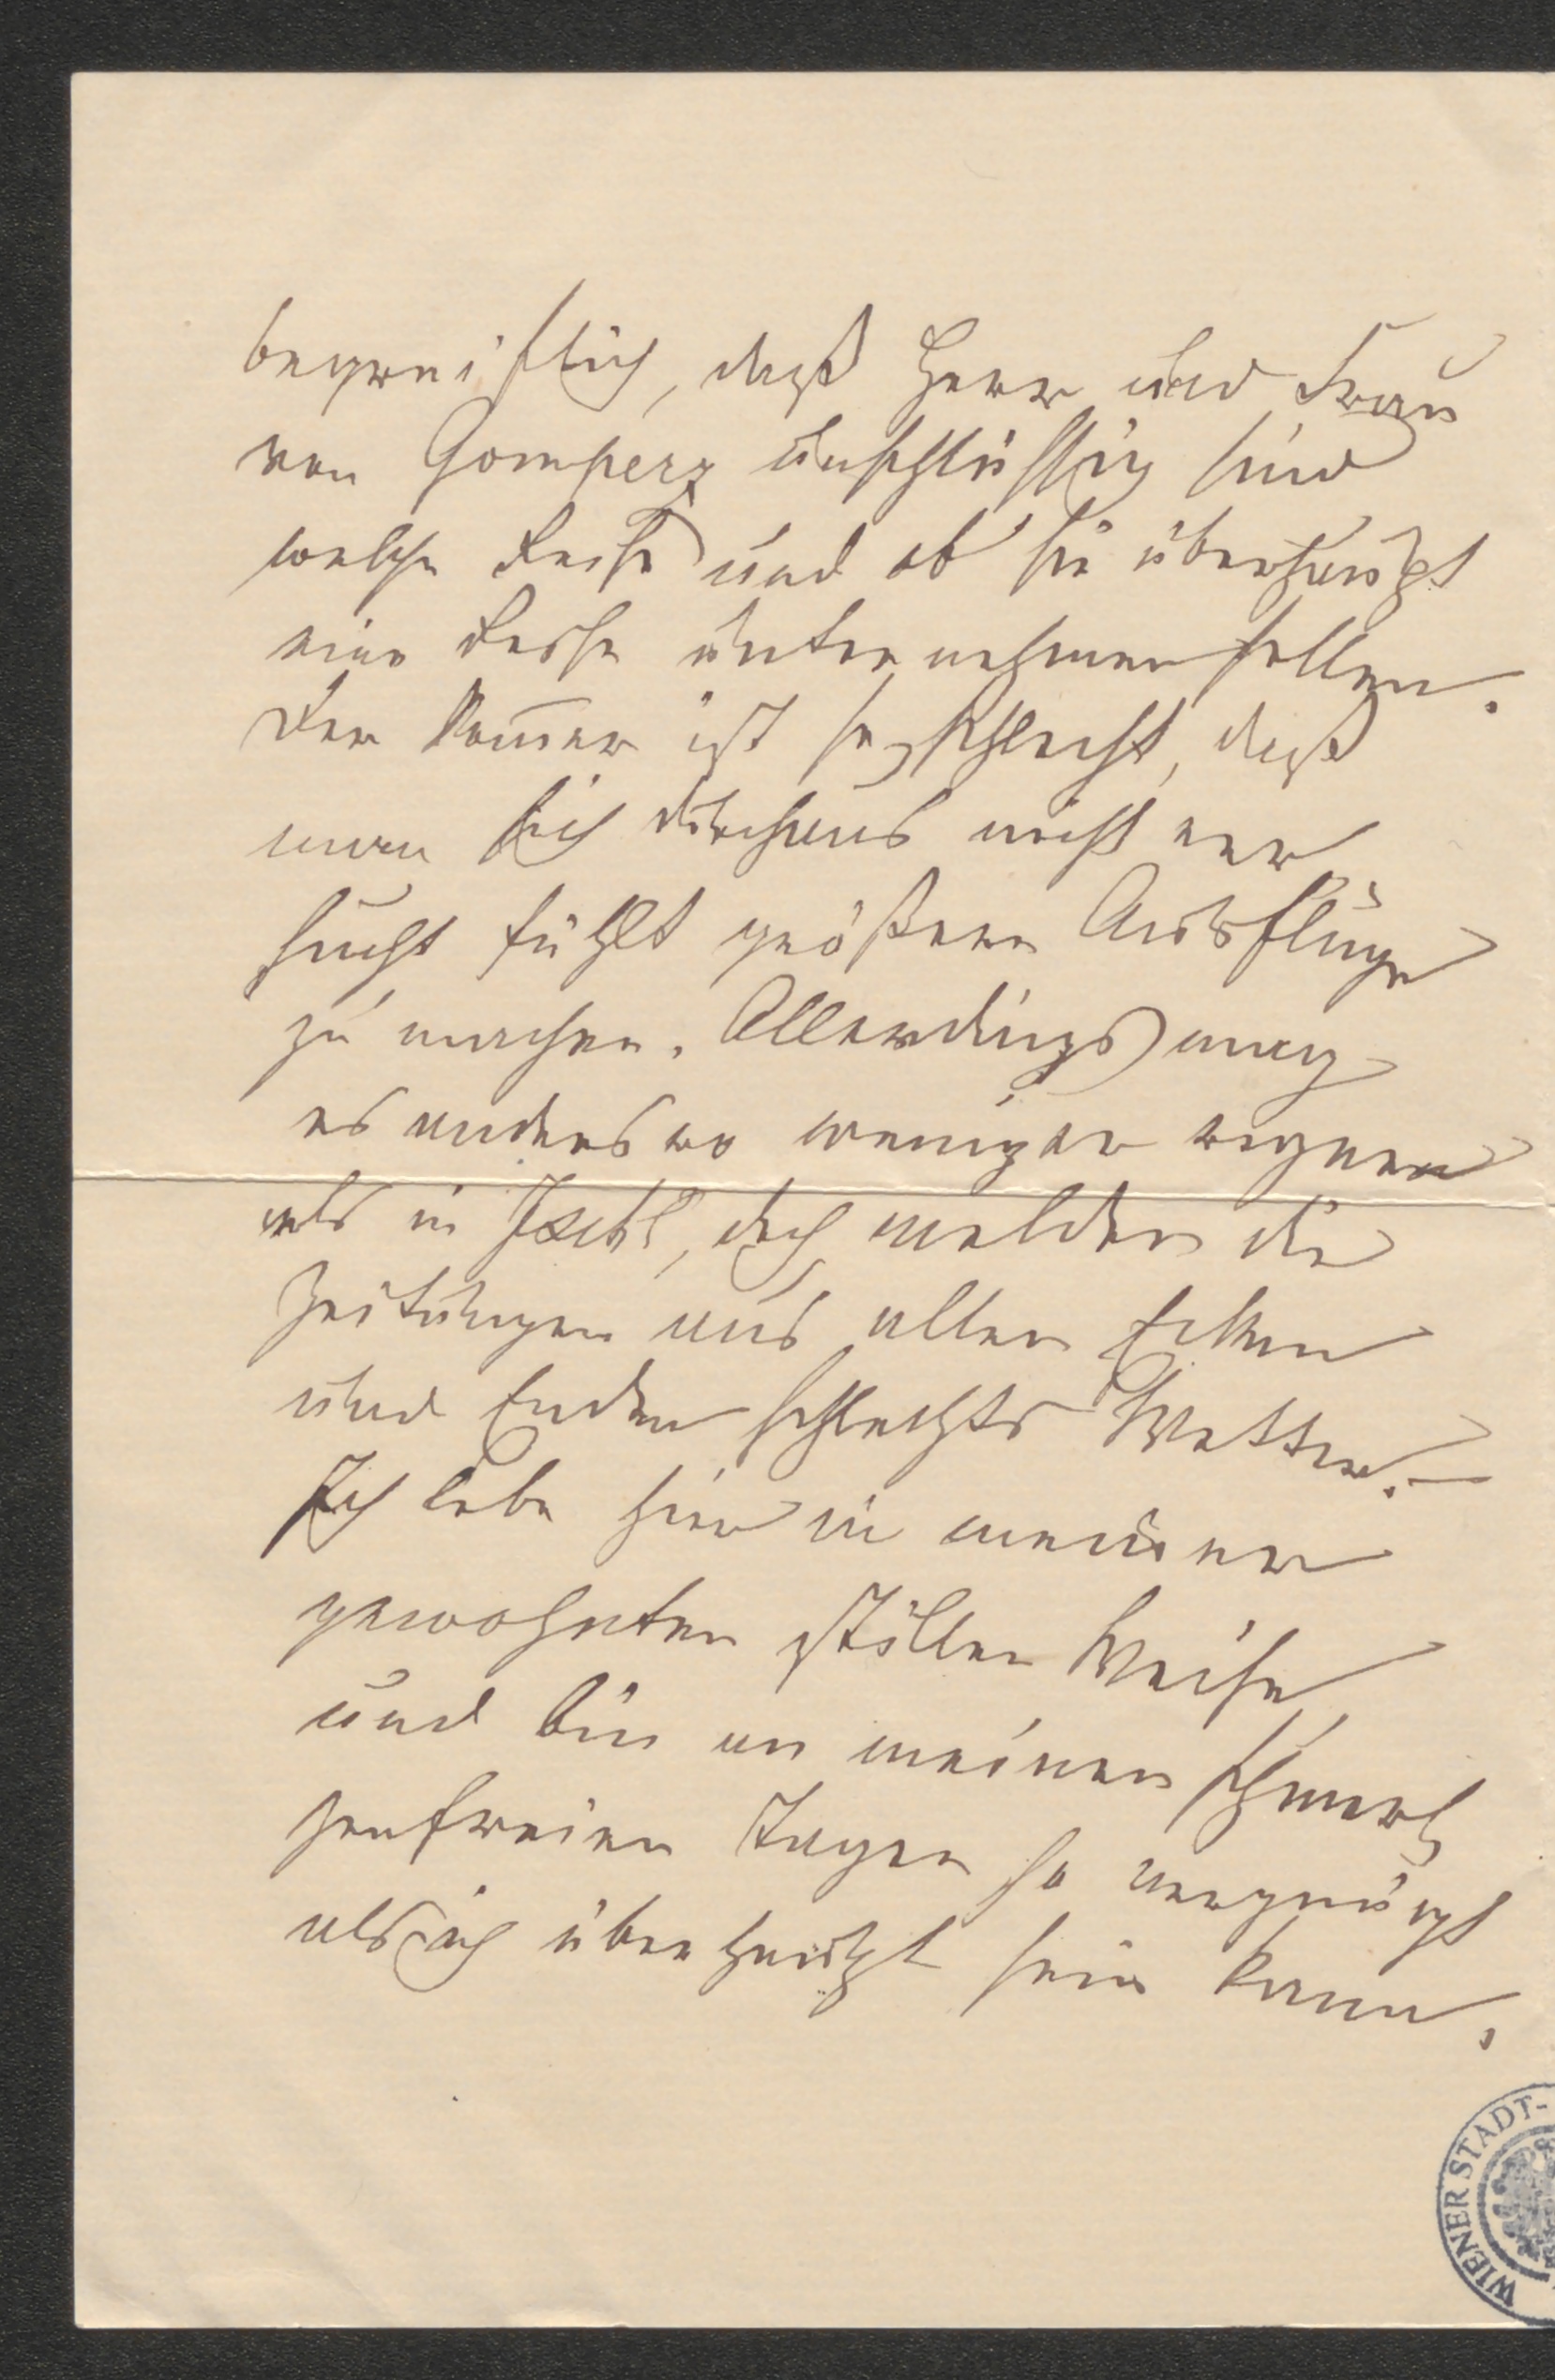 begreiflich, daß Herr und Frau
von Gomperz unschlüssig sind
welche Reise und ob sie überhaupt
eine Reise unternehmen sollen.
Der Som̅er ist so schlecht, daß
man sich durchaus nicht ver
sucht fühlt größere Ausflüge
zu machen. Allerdings mag
es anderswo weniger regnen
als in Ischl, doch melden die
Zeitungen aus allen Ecken
und Enden schlechtes Wetter. –
Ich lebe hier in meiner
gewohnten stillen Weise
und bin an meinen schmerz
zenfreien Tagen so vergnügt
als ich überhaupt sein kann.
WIENER STADT-